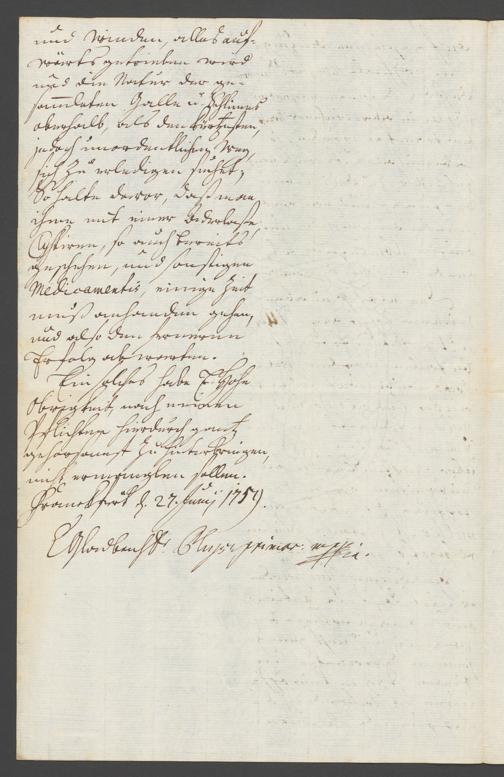 und Winden, alles auf-
wärts getrieben wird
und die Natur der ge-
sammleten Galle u. Schleimes
oberhalb, als den kürtzesten,
jedoch unordentlichen Weg,
sich zu erledigen suchet;
So halte davor, daß man
ihme mit einer Aderlaße,
Clystiren, so auch bereits
geschehen, und sonstigen
Medicamentis, einige Zeit
muß anhanden gehen,
und also den ferneren
Erfolg abwarten.
Ein solches habe E. Hohe
Obrigkeit nach meinen
Pflichten hierdurch gantz
gehorsamst zu hinterbringen,
nicht ermanglen sollen.
Franckfurt d. 27. Junij 1759.
Gladbach Dr. Physic. primar. mppria.